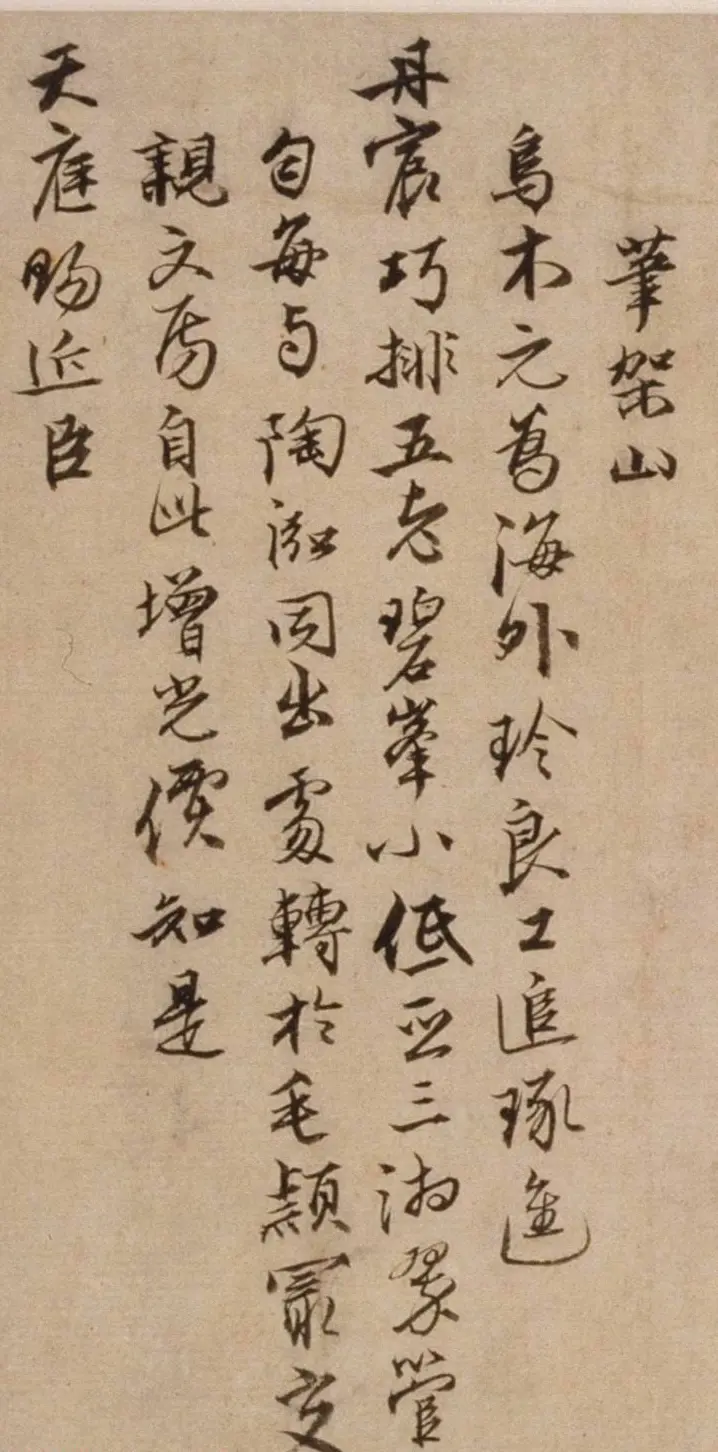 筆架山
烏木元爲海外珍良工追琢進
丹宸巧排五老碧峯小低亞三湘翠管
勻每与陶泓同出處轉於毛穎最交
親文房自此增光價知是
天庭賜近臣